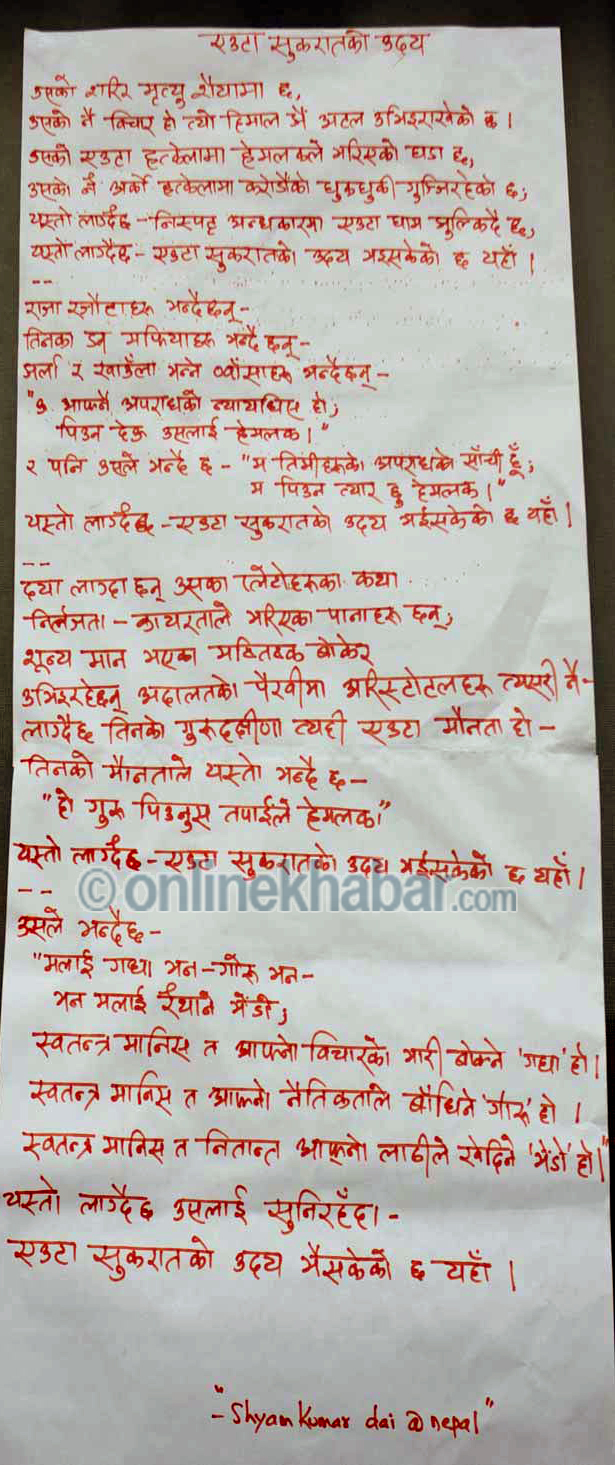 एउटा सुकरातको उदय
उसको शरिर मृत्यु शैयामा छ,
उसको नै विचार हो त्यो हिमाल झैं अटल उभिइराखेको छ।
उसको एउटा हत्केलामा हेमलकले भरिएको घडा छ,
उसको नै अर्को हत्केलामा करोडौंको धुकधुकी गुन्जिरहेको छ;
यस्तो लाग्दैछ - निस्पट्ट अन्धकारमा एउटा घाम झुल्किदै छ,
यस्तो लाग्दैछ - एउटा सुकरातको उदय भइसकेको छ यहाँ।
--
राजा रजौटाहरु भन्दैछन् -
तिनका मफियाहरु भन्दै छन् -
अर्ला र खाउँला भन्ने ब्वाँसाहरु भन्दैछन् -
"ऊ आफ्नै अपराधको न्यायधिस हो;
पिउन देऊ उसलाई हेमलक।"
र पनि उसले भन्दै छ - "म तिमीहरुको अपराधको साँची हूँ;
म पिउन त्यार छु हेमलक।"
यस्तो लाग्दैछ - एउटा सुकरातको उदय भईसकेको छ यहाँ।
--
दया लाग्दा छन् उसका प्लेटोहरुका कथा
निर्लजता - कायरताले भरिएका पानाहरु छन्;
शून्य मान भएका मष्तिष्क बोकेर
उभिइरहेछन् अदालतको पैरवीमा अरिस्टोटलहरु त्यसरी नै -
लाग्दैछ तिनको गुरुदक्षीणा त्यही एउटा मौनता हो -
तिनको मौनताले यस्तो भन्दै छ -
"हो गुरु पिउनुस तपाईले हेमलक"
यस्तो लाग्दैछ - एउटा सुकरातको उदय भईसकेको छ यहाँ।
--
© onlinekhabar.com
उसले भन्दैछ -
"मलाई गधा भन - गोरु भन -
भन मलाई रैथाने भेंडो;
स्वतन्त्र मानिस त आफ्नो विचारको भारी बोक्ने 'गधा' हो।
स्वतन्त्र मानिस त आफ्नो नैतिकताले बाँधिने 'गोरु' हो।
स्वतन्त्र मानिस त नितान्त आफ्नो लाठीले खेदिने 'भेंडो' हो।"
यस्तो लाग्दैछ उसलाई सुनिरहँदा -
एउटा सुकरातको उदय भैसकेको छ यहाँ।
"- Shyam Kumar dai @nepal"